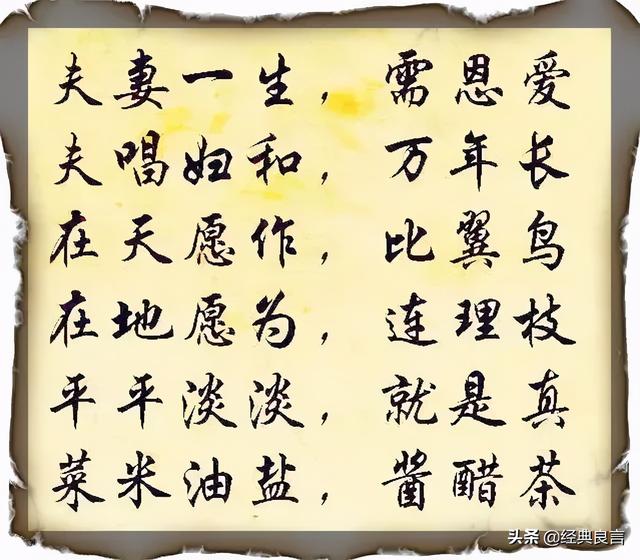 夫妻一生，需恩爱
夫唱妇和，万年长
在天愿作，比翼鸟
在地愿为，连理枝
平平淡淡，就是真
菜米油盐，酱醋茶
头条 @经典良言